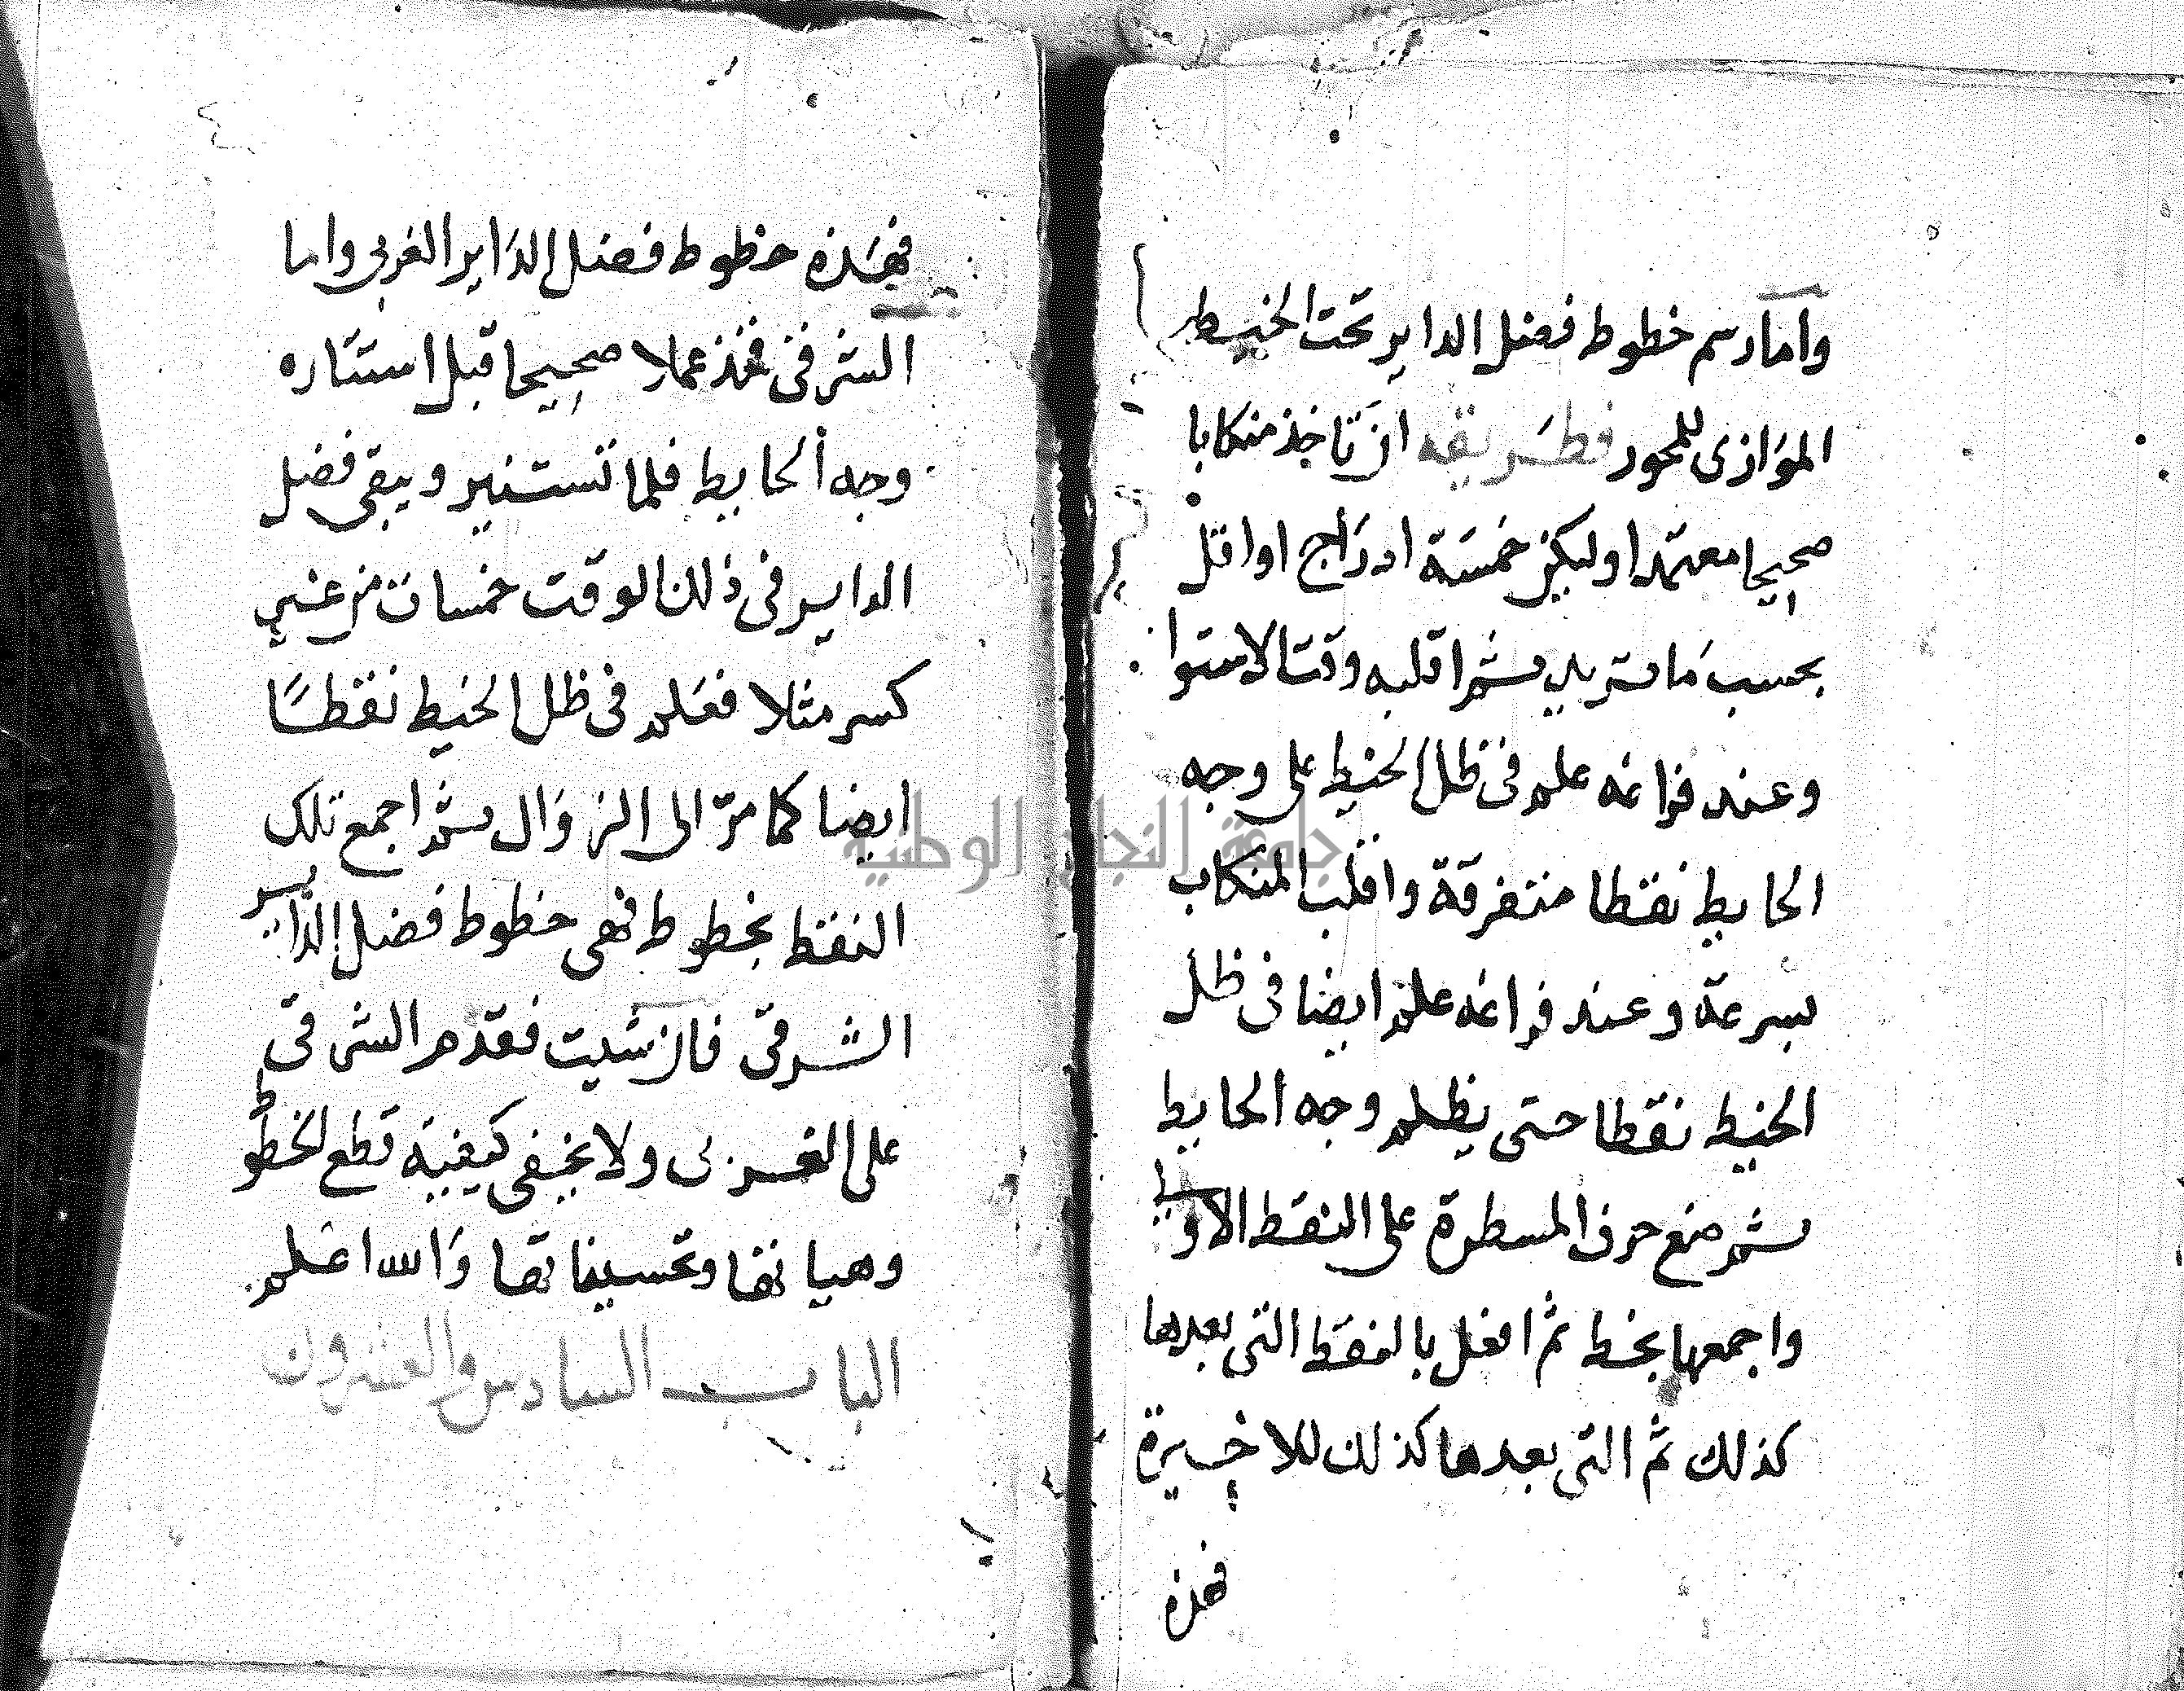 واما رسم خطوط فضل الداير تحت الخيط
الموازى للمحور فطريقه ان تاخذ منكابا
صحيحا معتمدا وليكن خمسة ادراج او اقل
بحسب ما تريد ثم اقلبه وقت الاستوا
وعند فراغه علم فى ظل الخيط على وجه
الحايط نقطا متفرقة واقلب المنكاب
بسرعة وعند فراغه علم ايضا فى ظل
الخيط نقطا حتى يظلم وجه الحايط
ثم ضع حرف المسطرة على النقط الاولى
واجمعها بخط ثم افعل بالنقط التى بعدها
كذلك ثم التى بعدها كذلك للاخيرة
فهذه
فهذه خطوط فضل الداير الغربى واما
الشرقى فخذ عملا صحيحا قبل استتاره
وجه الحايط فلما تستنير ويبقى فضل
الداير فى ذلك الوقت خمسات من غير
كسر مثلا فعلم فى ظل الخيط نقطًا
ايضا كما مرّ الى الزوال ثم اجمع تلك
النقط بخطوط فهى خطوط فضل الداير
الشرقى فان شيت فقدم الشرقى
على الغربى ولا يخفى كيفية قطع الخطوط
وهياتها وتحسيناتها والله اعلم
الباب السادس والعشرون
جامعة النجاح الوطنية